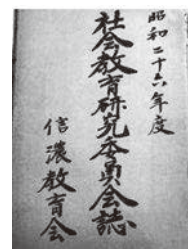 昭和二十六年度
社会教育研究委員会誌
信濃教育会